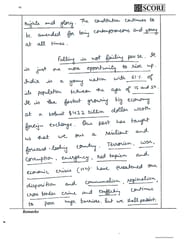 SCORE
rights and glory. The constitution continues to
be amended for being contemporaneous and young
at all times.
Falling is not failing per se. It
is just one more opportunity to rise up.
India is a young nation with 65% of
its population between the ages of 15 and 35.
It is the fastest growing big economy
at a robust $422 billion dollar worth
foreign exchange. Our past has taught
us that we are a resilient and
forward-looking country. Terrorism, wars,
corruption, emergency, red tapism and
economic crises (1991) have threatened our
disposition and communalism, regionalism,
cross border crises and continue
to pose huge barriers but we shall persist.
Remarks